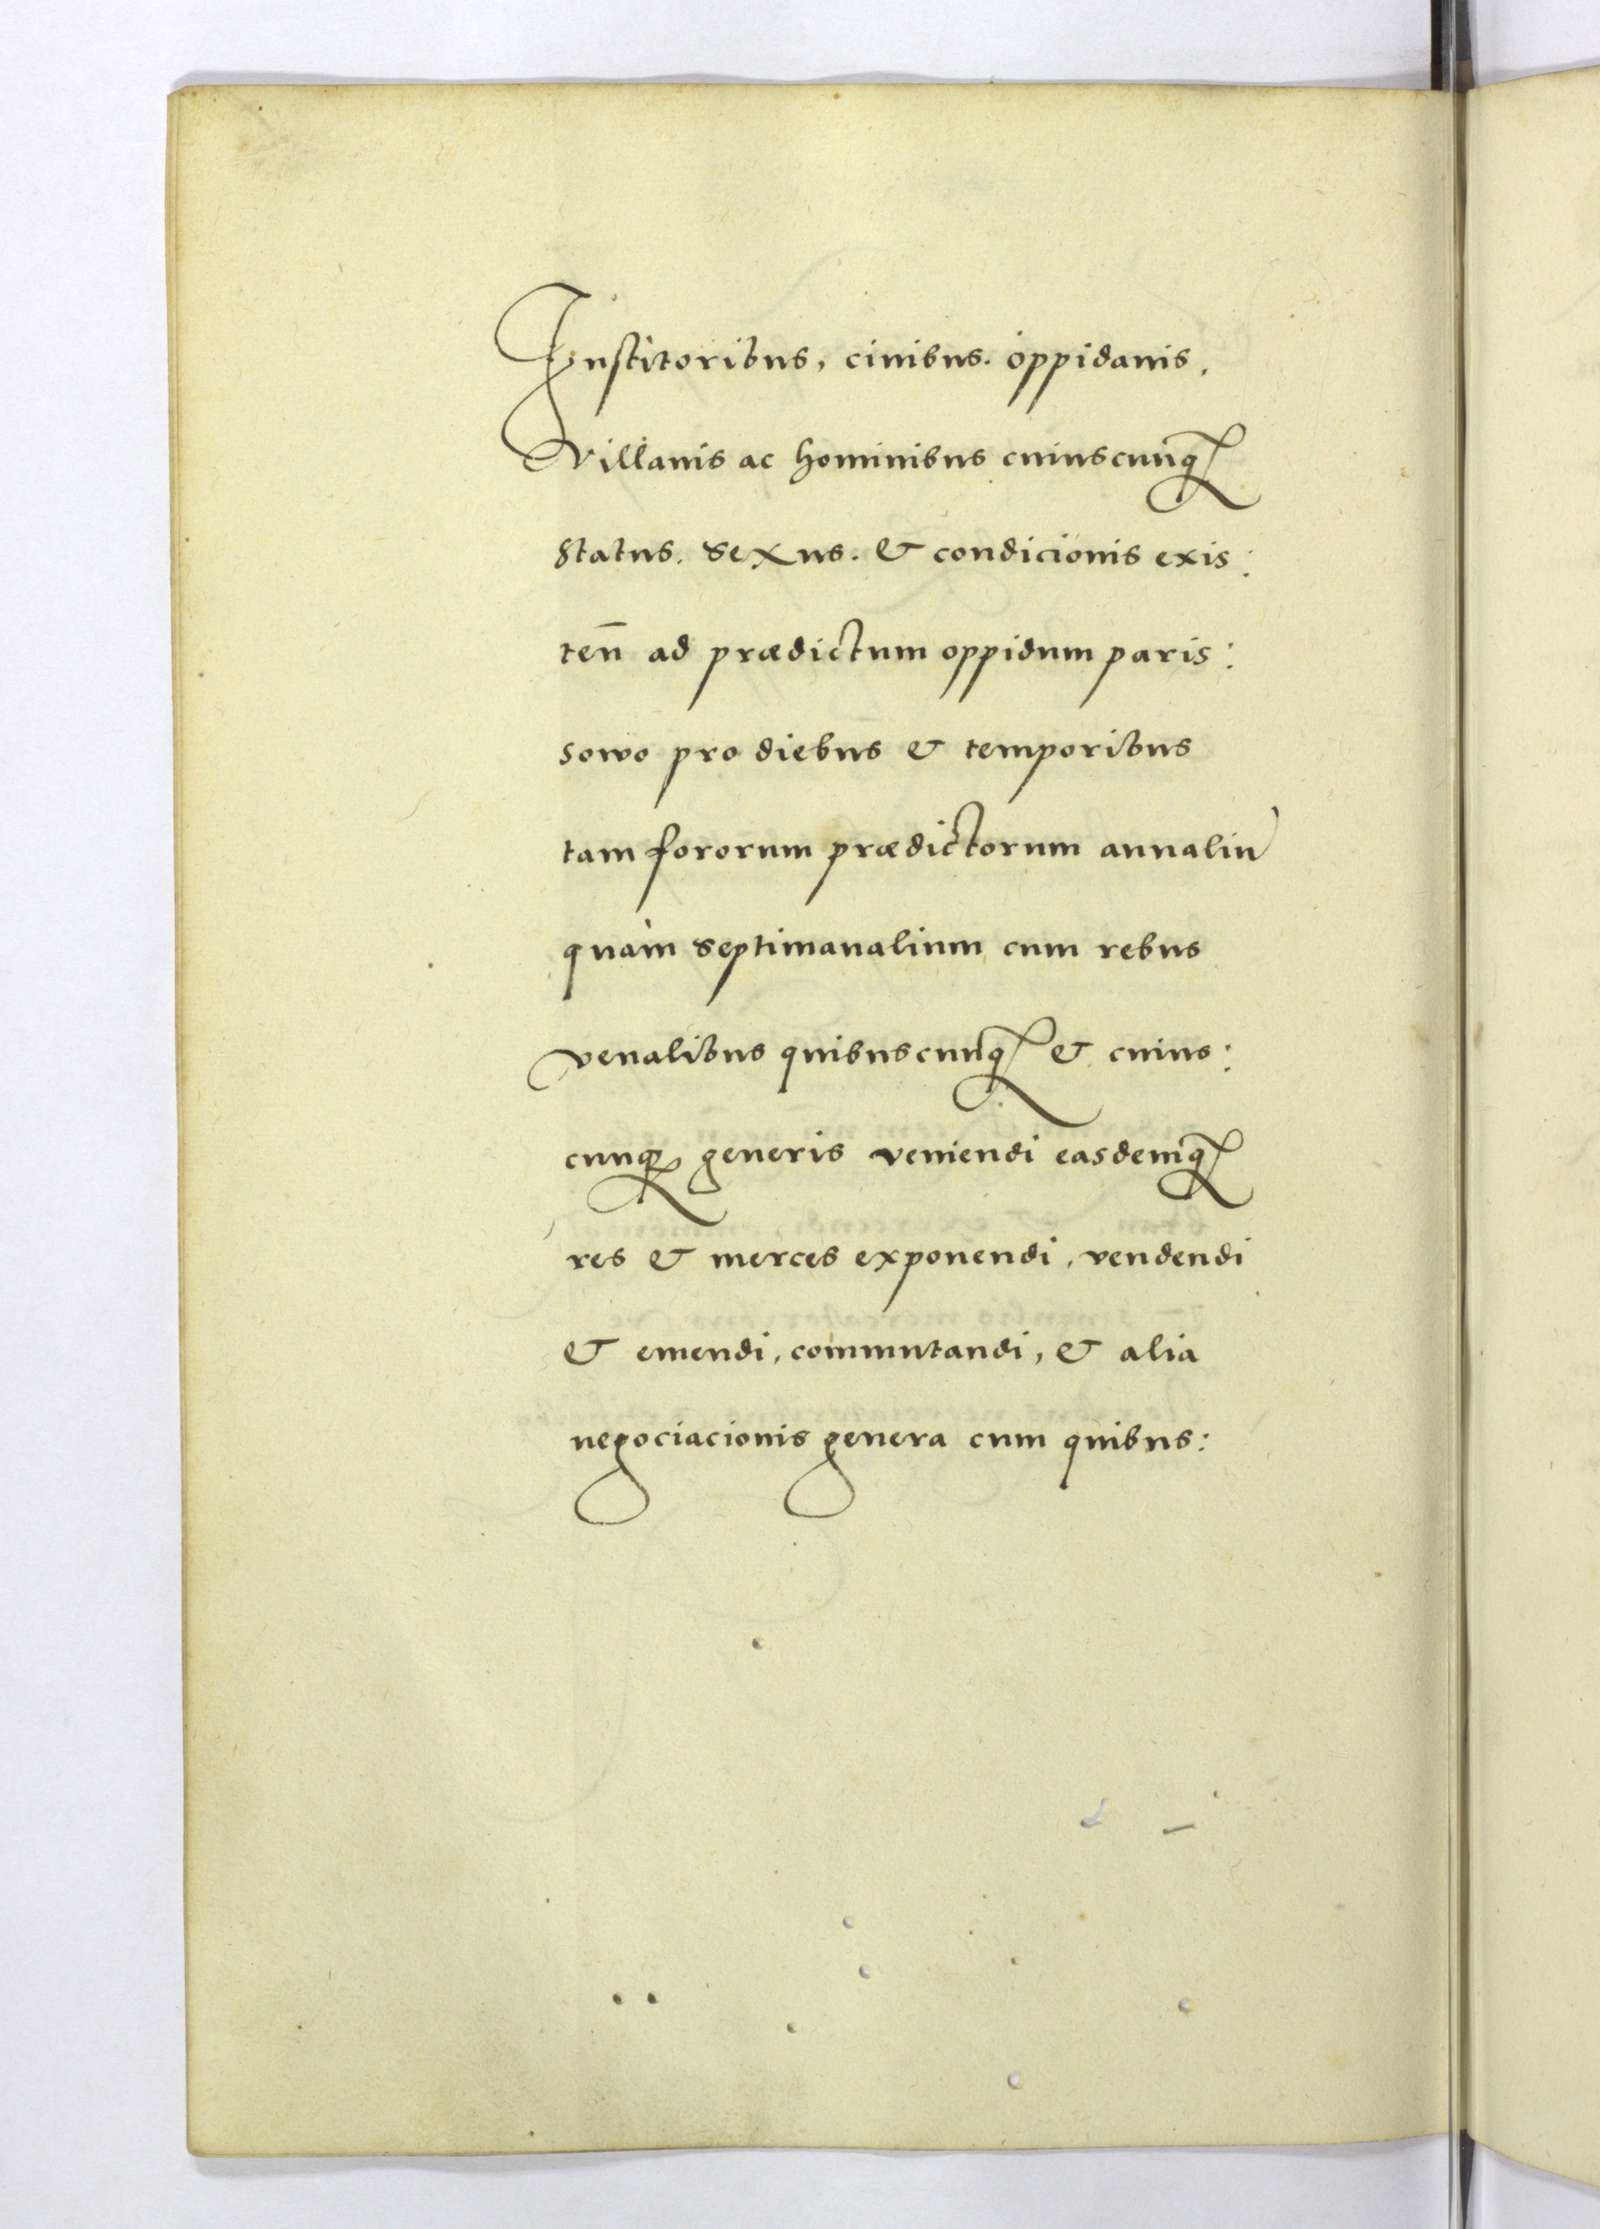 Institoribus, ciuibus. oppidanis,
Villanis ac hominibus cuiuscunqȝ
status. sexus. & condicionis exis:
ten̄ ad prædictum oppidum paris:
sowo pro diebus & temporibus
tam fororum prædictorum annaliū
quàm septimanalium cum rebus
venalibus quibuscunqȝ & cuius:
cunqȝ generis veniendi easdemqȝ
res & merces exponendi, vendendi
& emendi, commutandi, & alia
negociacionis genera cum quibus: